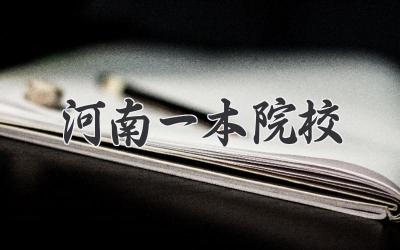 河南一本院校